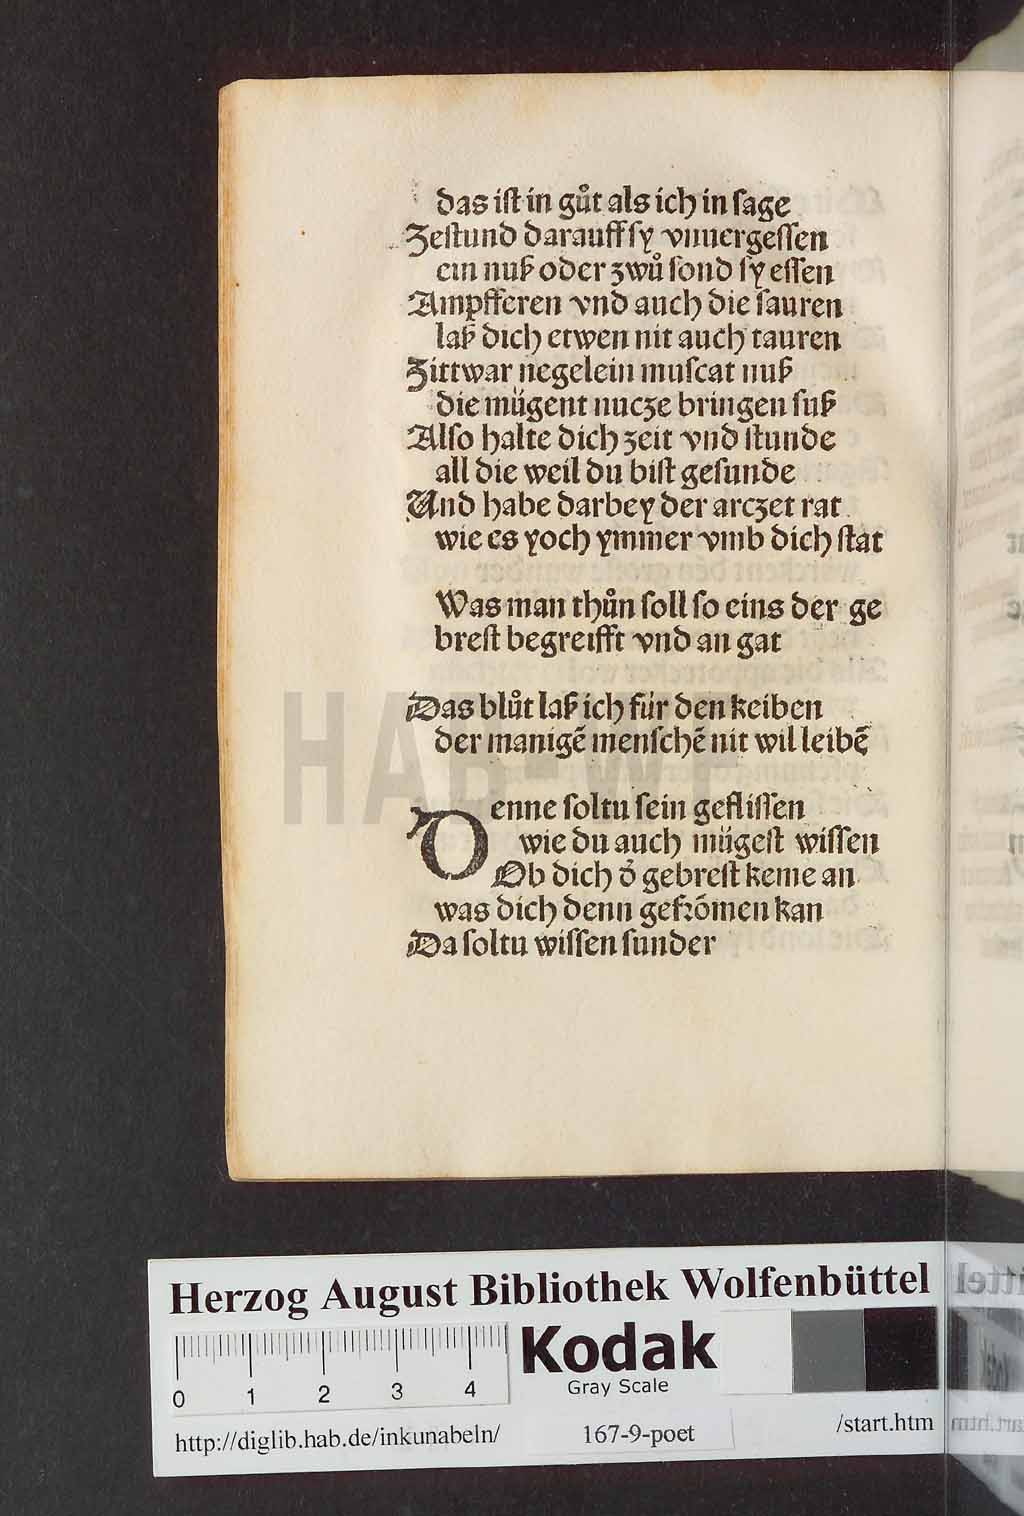 das ist in gůt als ich in sage
Zestund darauff sy vnuergessen
ein nuß oder zwů sond sy essen
Ampfferen vnd auch die sauren
laß dich etwen nit auch tauren
Zittwar negelein muscat nuß
die mügent nucze bringen suß
Also halte dich zeit vnd stunde
all die weil du bist gesunde
Und habe darbey der arczet rat
wie es yoch ymmer vmb dich stat
Was man thůn soll so eins der ge
brest begreifft vnd an gat
Das blůt laß ich für den keiben
der manigē menschē nit wil leibē
Denne soltu sein geflissen
wie du auch mügest wissen
Ob dich d̕ gebrest keme an
was dich denn gefrōmen kan
Da soltu wissen sunder
HAB-WF
Herzog August Bibliothek Wolfenbüttel
0 1 2 3 4
Kodak
Gray Scale
http://diglib.hab.de/inkunabeln/ 167-9-poet /start.htm